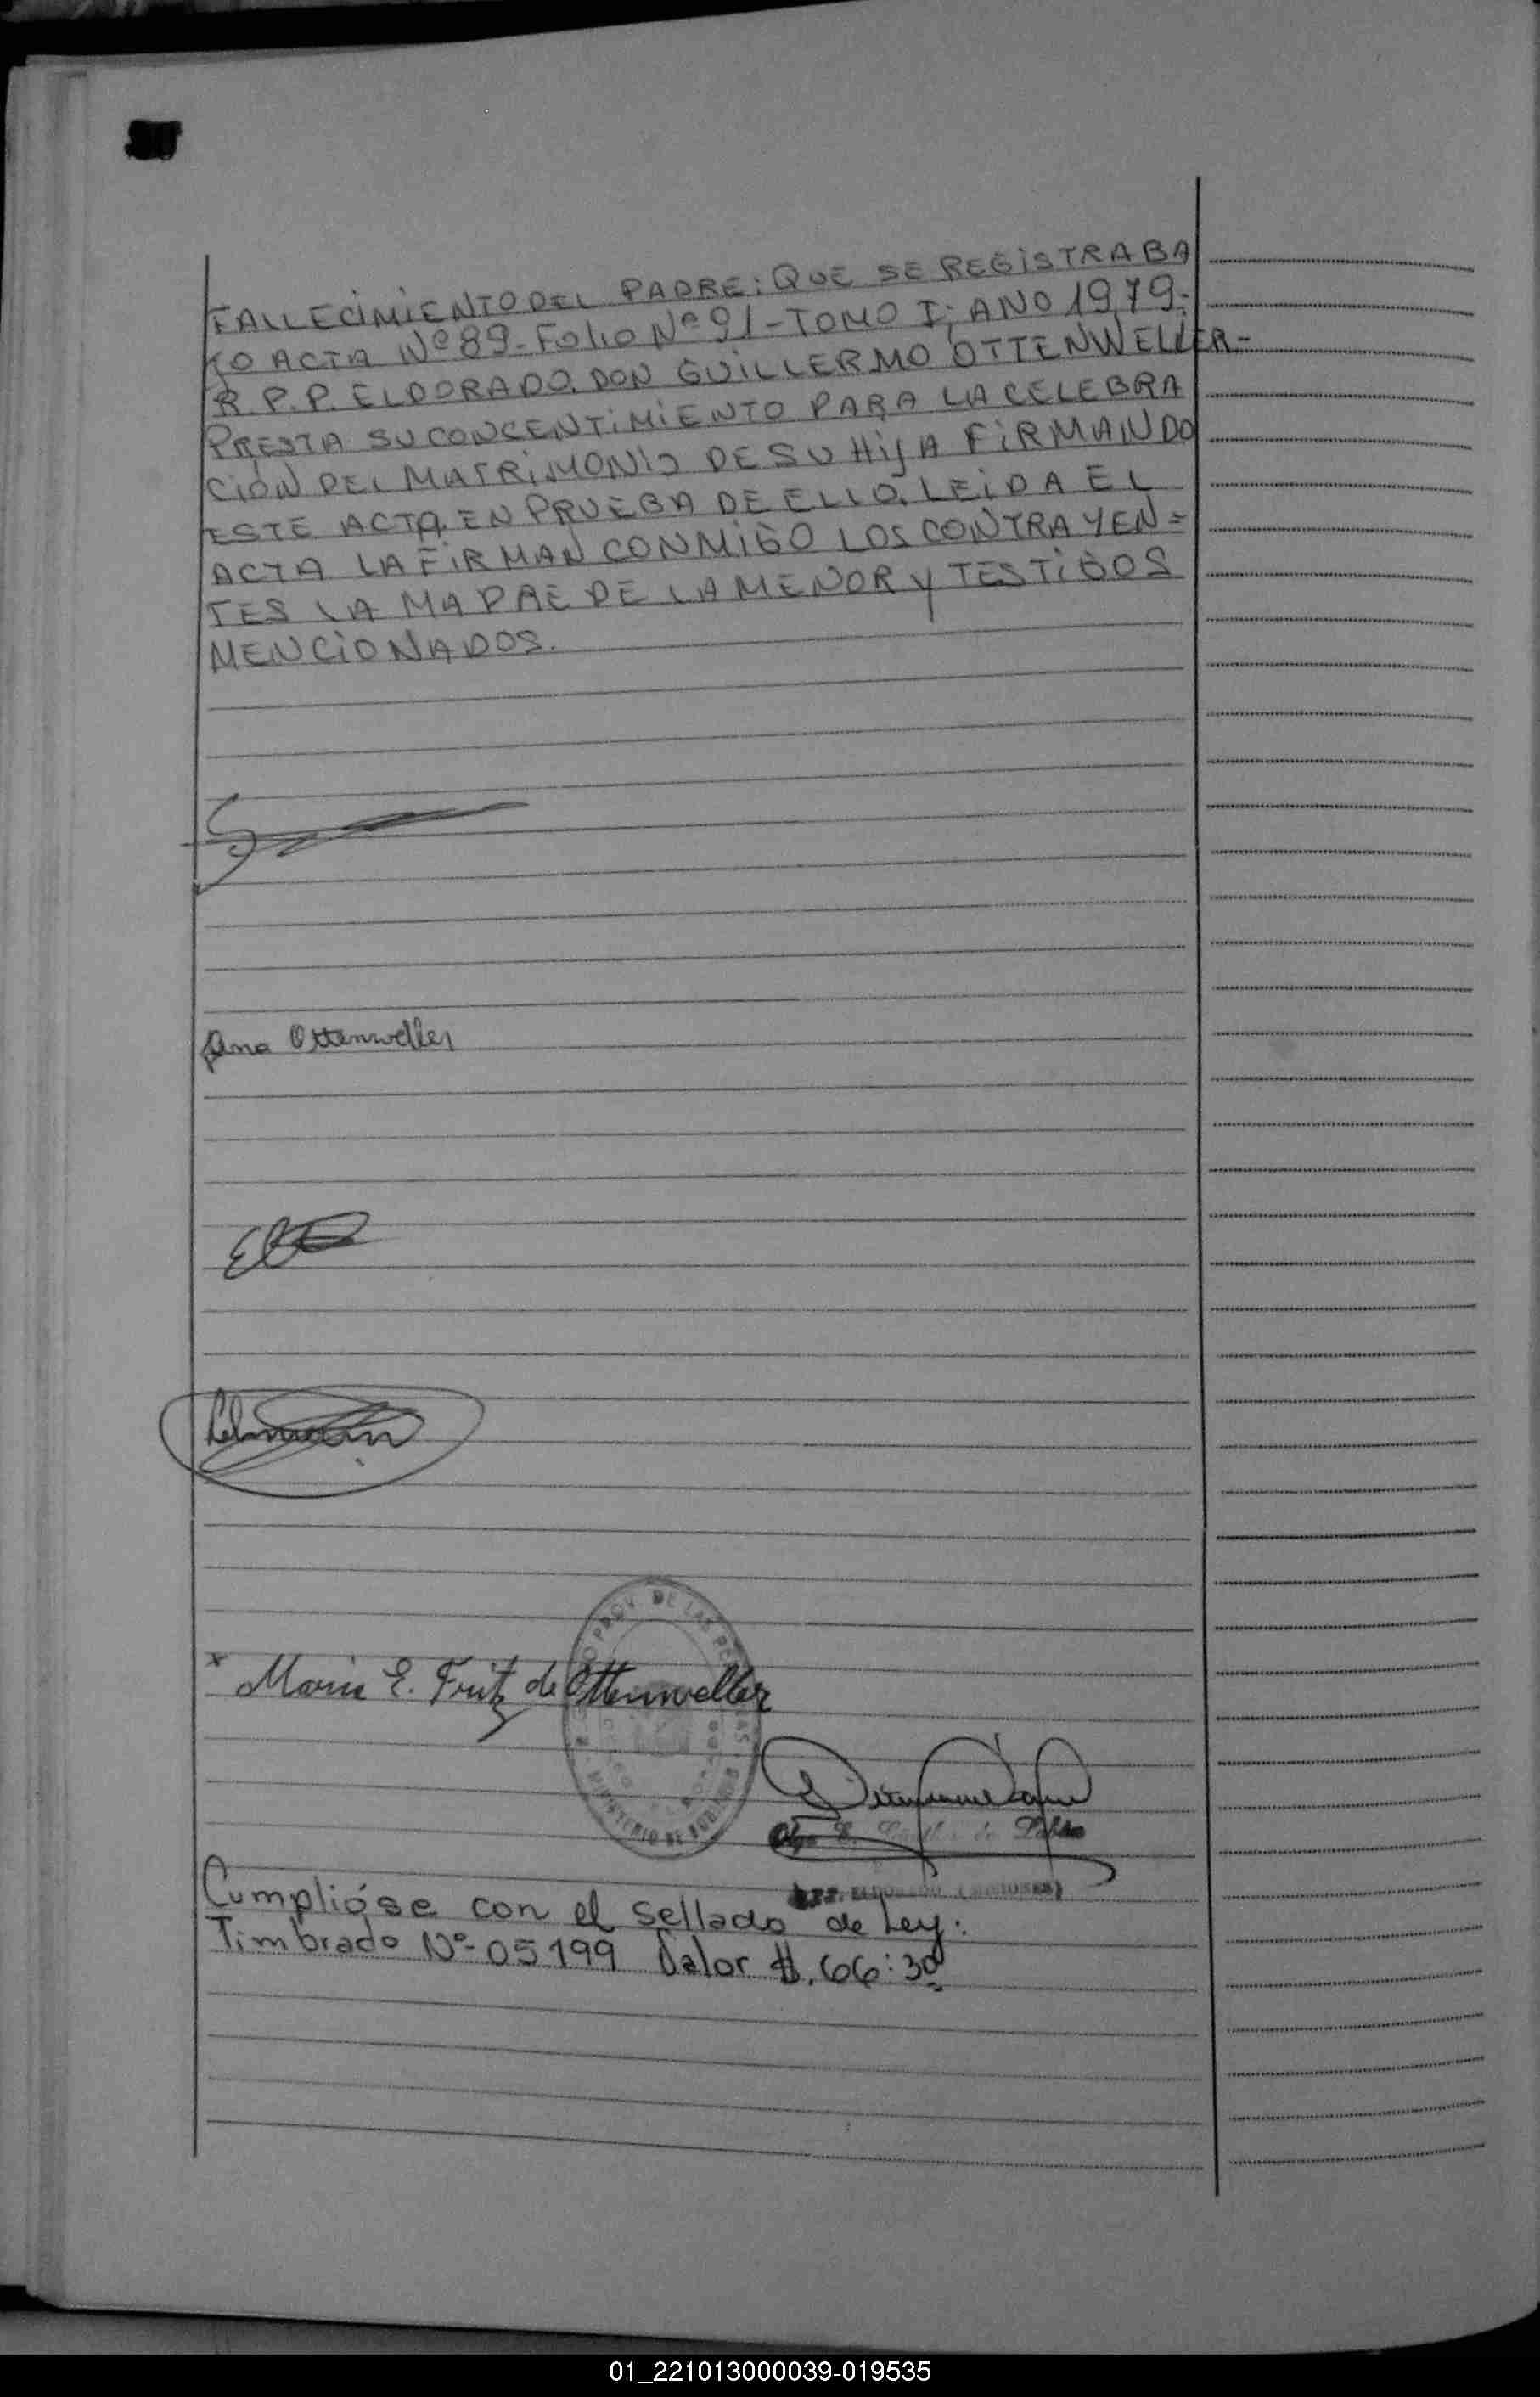 FALLECIMIENTO DEL PADRE: QUE SE REGISTRABA
TO ACTA Nº 89- Folio Nº 91 - TOMO I; ANO 1979:
R.P.P. ELDORADO. DON GUILLERMO OTTENWELLER-
PRESTA SU CONCENTIMIENTO PARA LA CELEBRA
CIÓN DEL MATRIMONIO DE SU HIJA FIRMANDO
ESTE ACTA EN PRUEBA DE ELLO. LEIDA EL
ACTA LA FIRMAN CONMIGO LOS CONTRAYEN=
TES LA MADRE DE LA MENOR y TESTIGOS
MENCIONADOS.
Ana Ottenweller
x Maria E. Fritz de Ottenweller
PROV. DE LAS
MINISTERIO DE GOBIERNO
Olga
ELDORADO (MISIONES)
Cumplióse con el sellado de Ley:
Timbrado Nº- 05199 Valor $. 66:30
01_221013000039-019535